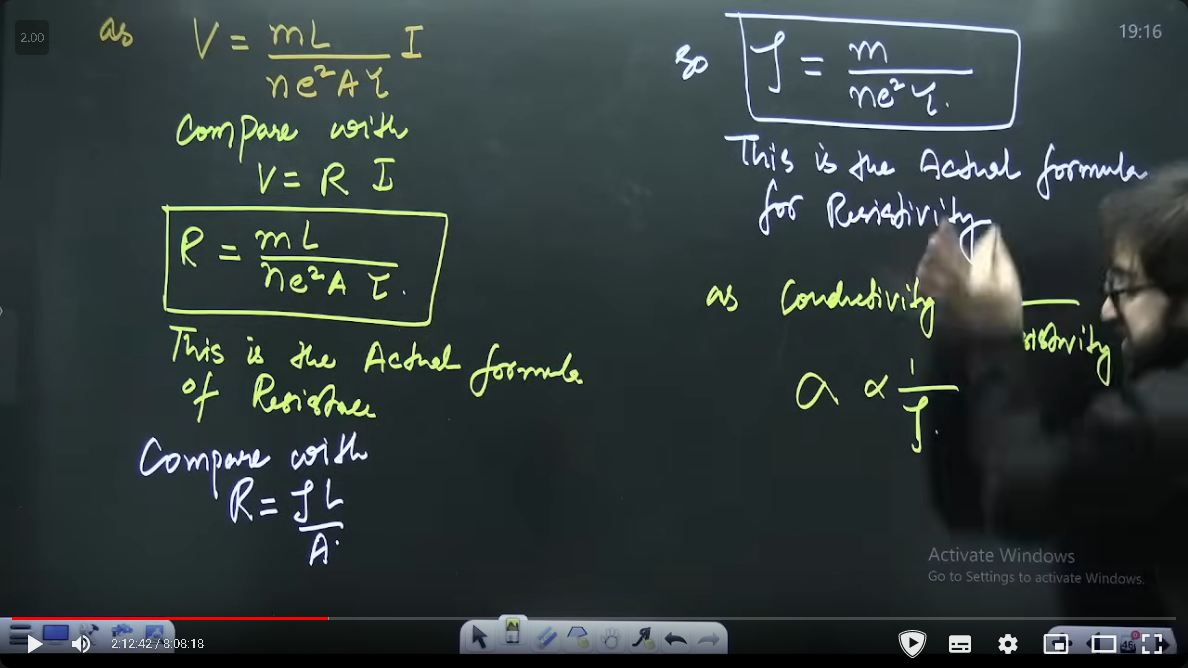 2.00
19:16
as V = mL / ne²Aτ I
Compare with
V = R I
R = mL / ne²A τ.
This is the Actual formula
of Resistance
Compare with
R = ρL / A.
so ρ = m / ne²τ.
This is the Actual formula
for Resistivity
as Conductivity
sistivity
σ ∝ 1 / ρ.
Activate Windows
Go to Settings to activate Windows.
2:12:42 / 8:08:18